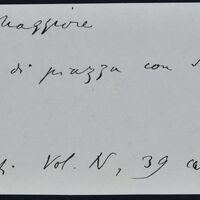 Maggiore
di piazza con
Vol. N, 39 ca